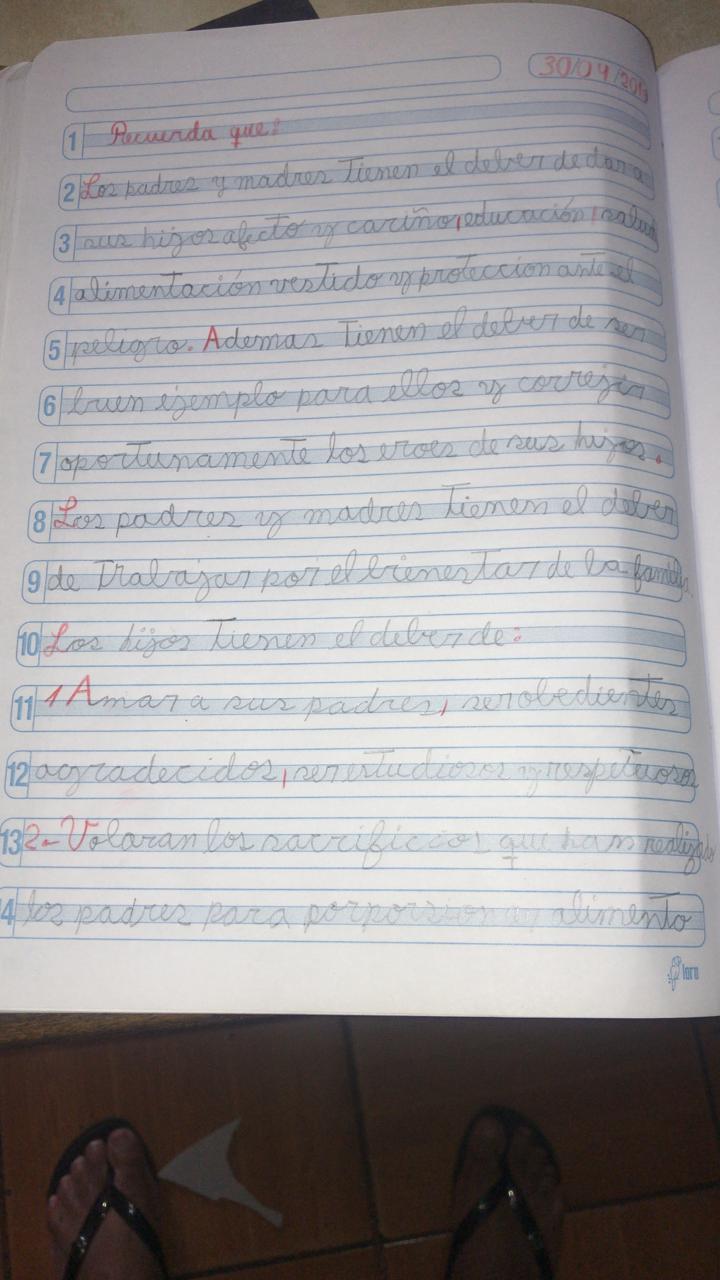 30/04/201
1 Recuerda que:
2 Los padres y madres tienen el deber de dar a
3 sus hijos afecto y cariño, educación, salud
4 alimentación vestido y protección ante el
5 peligro. Ademas tienen el deber de ser
6 buen ejemplo para ellos y correjir
7 oportunamente los eroes de sus hijos.
8 Los padres y madres tienen el deber
9 de trabajar por el bienestar de la familia.
10 Los hijos tienen el deber de:
11 1 Amar a sus padres, ser obedientes
12 agradecidos, ser estudiosos y respetuosos
13 2- Volaran los sacrificios que han realizado
4 los padres para porporsionar alimento
loro